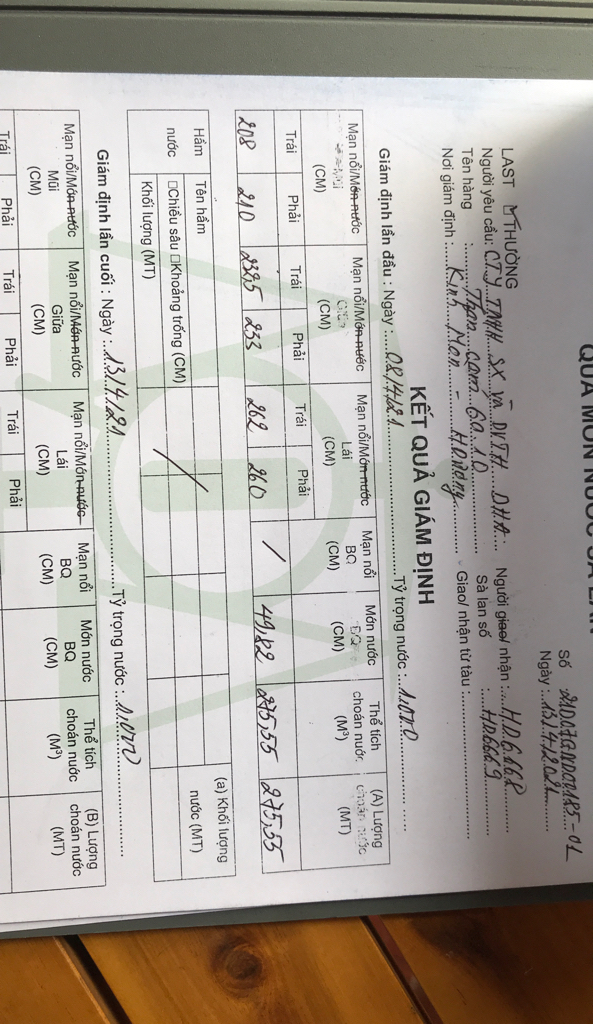 QUA MÓN NƯỚC SÀ LAN
Số
Ngày : 13/4/2021
LAST THƯỜNG
Người yêu cầu: CTY TNHH SX và DVTH DHA Người giao/ nhận : HD6168
Tên hàng : Than cám 6a.10 Sà lan số : HD6669
Nơi giám định : Kinh Môn - HDương Giao/ nhận từ tàu :
KẾT QUẢ GIÁM ĐỊNH
Giám định lần đầu : Ngày : 08/4/21 Tỷ trọng nước : 1.000
Mạn nổi/Món nước (CM) Mạn nổi/Món nước (CM) Mạn nổi/Món nước Lái (CM) Mạn nổi BQ (CM) Món nước BQ (CM) Thể tích choán nước (M³) (A) Lượng choán nước (MT)
Trái Phải Trái Phải Trái Phải
208 210 232,5 233 262 260 / 49,82 275,55 275,55
Hầm nước Tên hầm (a) Khối lượng nước (MT)
□Chiều sâu □Khoảng trống (CM)
Khối lượng (MT)
Giám định lần cuối : Ngày : 13/4/21 Tỷ trọng nước : 1,000
Mạn nổi/Món nước Mũi (CM) Mạn nổi/Món nước Giữa (CM) Mạn nổi/Món nước Lái (CM) Mạn nổi BQ (CM) Món nước BQ (CM) Thể tích choán nước (M³) (B) Lượng choán nước (MT)
Trái Phải Trái Phải Trái Phải